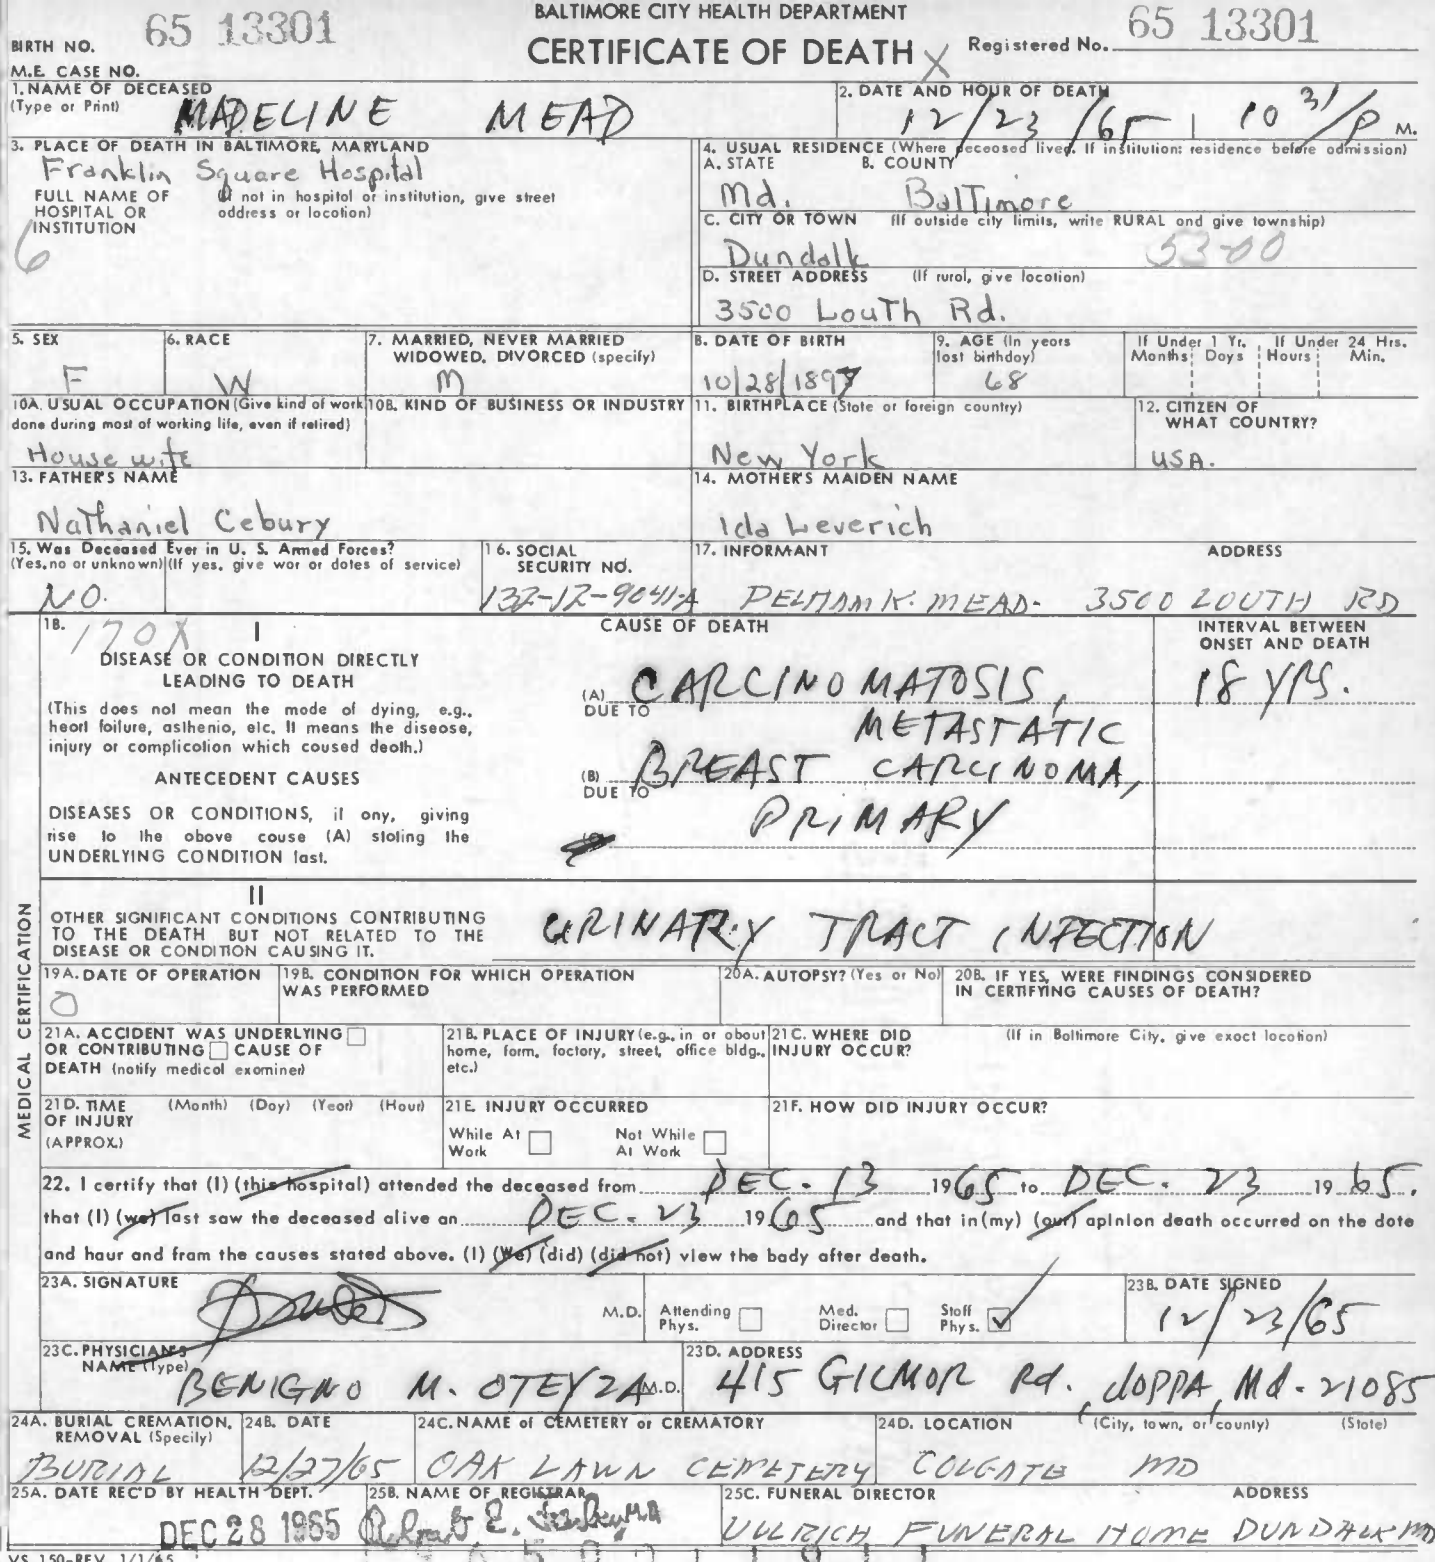 BALTIMORE CITY HEALTH DEPARTMENT
BIRTH NO. 65 13301 CERTIFICATE OF DEATH X Registered No. 65 13301
M.E. CASE NO.
1. NAME OF DECEASED (Type or Print) MADELINE MEAD
2. DATE AND HOUR OF DEATH 12/23/65 | 10 31/P M.
3. PLACE OF DEATH IN BALTIMORE, MARYLAND
Franklin Square Hospital
FULL NAME OF HOSPITAL OR INSTITUTION (If not in hospital or institution, give street address or location)
6
4. USUAL RESIDENCE (Where deceased lived. If institution: residence before admission)
A. STATE B. COUNTY
Md. Baltimore
C. CITY OR TOWN (If outside city limits, write RURAL and give township)
Dundalk 53-00
D. STREET ADDRESS (If rural, give location)
3500 Louth Rd.
5. SEX F
6. RACE W
7. MARRIED, NEVER MARRIED WIDOWED, DIVORCED (specify) M
8. DATE OF BIRTH 10/28/1897
9. AGE (In years last birthday) 68
If Under 1 Yr. Months Days
If Under 24 Hrs. Hours Min.
10A. USUAL OCCUPATION (Give kind of work done during most of working life, even if retired)
House wife
10B. KIND OF BUSINESS OR INDUSTRY
11. BIRTHPLACE (State or foreign country)
New York
12. CITIZEN OF WHAT COUNTRY?
USA.
13. FATHER'S NAME
Nathaniel Cebury
14. MOTHER'S MAIDEN NAME
Ida Leverich
15. Was Deceased Ever in U. S. Armed Forces?
(Yes, no or unknown) (If yes, give war or dates of service)
NO.
16. SOCIAL SECURITY NO.
132-12-9041-A
17. INFORMANT ADDRESS
PELHAM K. MEAD- 3500 LOUTH RD
18. 170X I
DISEASE OR CONDITION DIRECTLY LEADING TO DEATH
(This does not mean the mode of dying, e.g., heart failure, asthenia, etc. It means the disease, injury or complication which caused death.)
ANTECEDENT CAUSES
DISEASES OR CONDITIONS, if any, giving rise to the above cause (A) stating the UNDERLYING CONDITION last.
CAUSE OF DEATH
(A) CARCINOMATOSIS,
DUE TO METASTATIC
(B) BREAST CARCINOMA,
DUE TO PRIMARY
INTERVAL BETWEEN ONSET AND DEATH
18 YRS.
II
OTHER SIGNIFICANT CONDITIONS CONTRIBUTING TO THE DEATH BUT NOT RELATED TO THE DISEASE OR CONDITION CAUSING IT.
URINARY TRACT INFECTION
MEDICAL CERTIFICATION
19A. DATE OF OPERATION
0
19B. CONDITION FOR WHICH OPERATION WAS PERFORMED
20A. AUTOPSY? (Yes or No)
20B. IF YES, WERE FINDINGS CONSIDERED IN CERTIFYING CAUSES OF DEATH?
21A. ACCIDENT WAS UNDERLYING OR CONTRIBUTING CAUSE OF DEATH (notify medical examiner)
21B. PLACE OF INJURY (e.g., in or about home, farm, factory, street, office bldg., etc.)
21C. WHERE DID INJURY OCCUR? (If in Baltimore City, give exact location)
21D. TIME OF INJURY (APPROX.) (Month) (Day) (Year) (Hour)
21E. INJURY OCCURRED
While At Work Not While At Work
21F. HOW DID INJURY OCCUR?
22. I certify that (I) (this hospital) attended the deceased from DEC. 13 1965 to DEC. 23 1965.
that (I) (we) last saw the deceased alive on DEC. 23 1965 and that in (my) (our) opinion death occurred on the date
and hour and from the causes stated above. (I) (We) (did) (did not) view the body after death.
23A. SIGNATURE
M.D. Attending Phys. Med. Director Staff Phys.
23B. DATE SIGNED
12/23/65
23C. PHYSICIAN'S NAME (Type)
BENIGNO M. OTEYZA M.D.
23D. ADDRESS
415 GILMOR Rd. JOPPA, Md. 21085
24A. BURIAL CREMATION, REMOVAL (Specify)
BURIAL
24B. DATE
12/27/65
24C. NAME of CEMETERY or CREMATORY
OAK LAWN CEMETERY
24D. LOCATION (City, town, or county) (State)
COLGATE MD
25A. DATE REC'D BY HEALTH DEPT.
DEC 28 1965
25B. NAME OF REGISTRAR
25C. FUNERAL DIRECTOR ADDRESS
ULLRICH FUNERAL HOME DUNDALK MD
VS 150-REV. 1/1/65